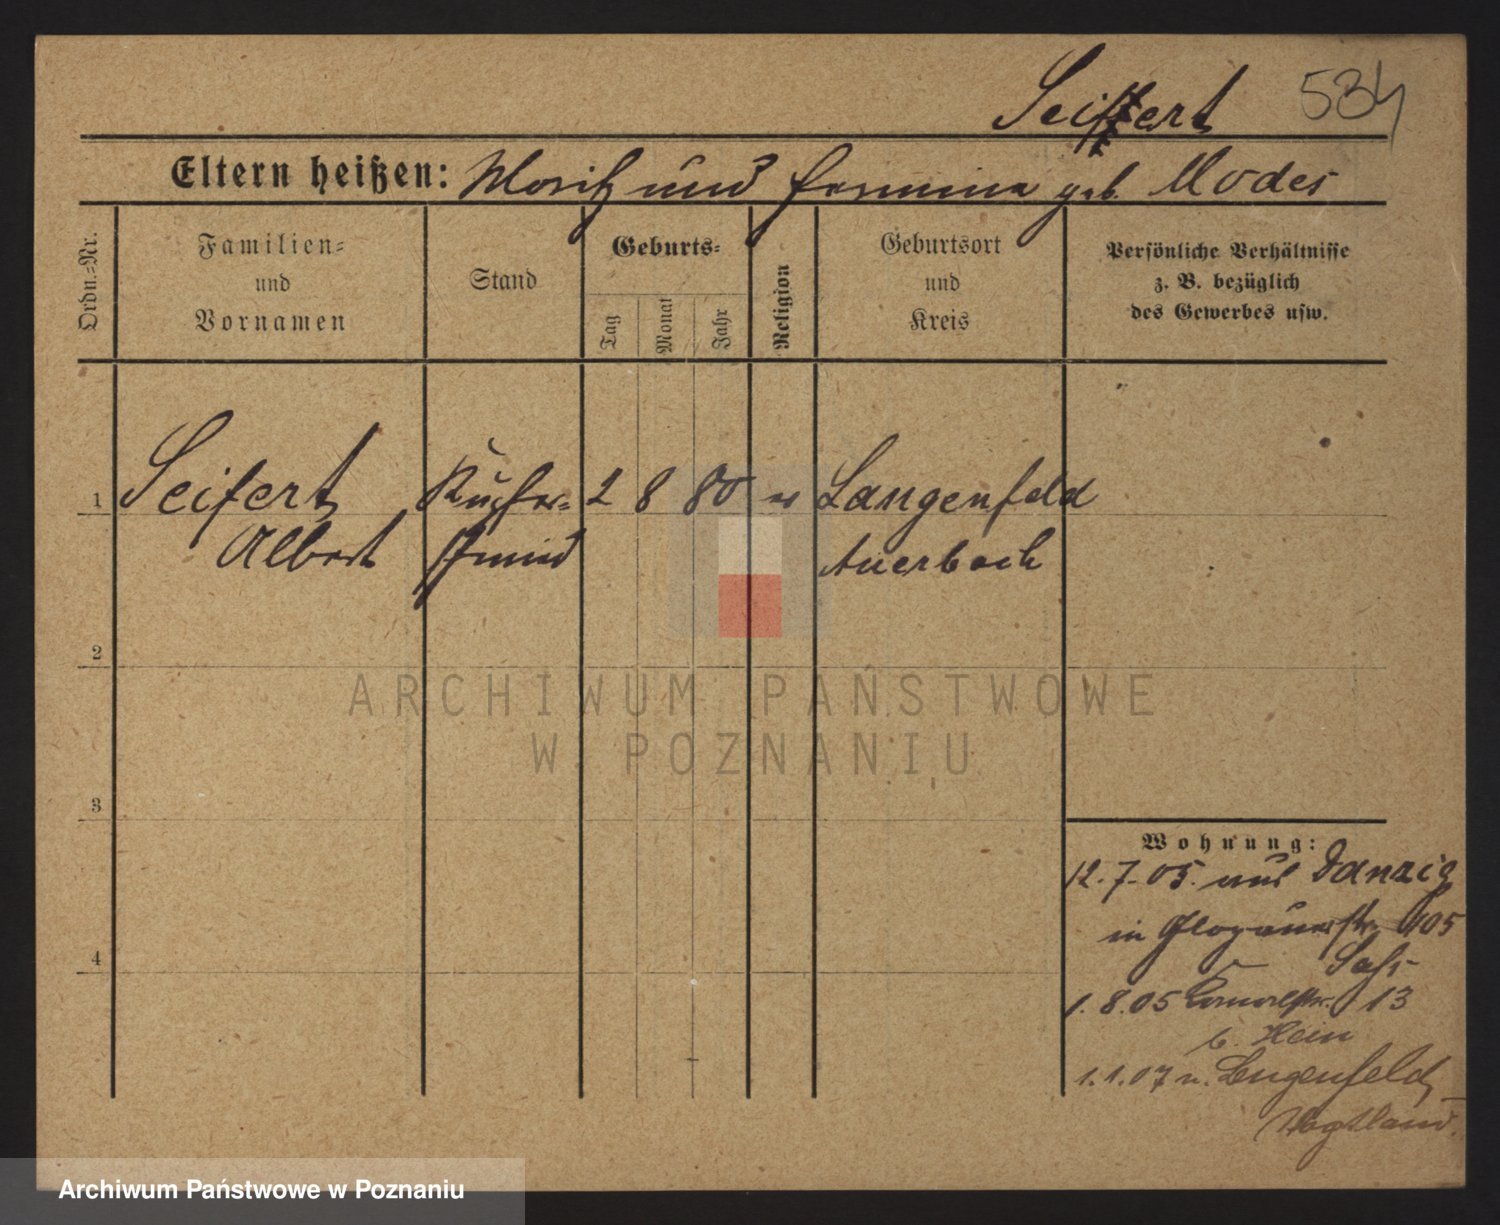 Seifert 534
Eltern heißen: Moritz und Hermine geb. Modes
Ordn.=Nr.
Familien=
und
Vornamen
Stand
Geburts=
Tag
Monat
Jahr
Religion
Geburtsort
und
Kreis
Persönliche Verhältnisse
z. B. bezüglich
des Gewerbes usw.
1 Seifert Kupfer= 2 8 80 ev Langenfeld
Albert schmied Auerbach
2
3
4
Wohnung:
12.7.05. aus Danzig
in Glogauerstr. 105
1.8.05 13
b. Hein
1.1.07 n. Lengenfeld
Vogtland.
ARCHIWUM PAŃSTWOWE
W POZNANIU
Archiwum Państwowe w Poznaniu